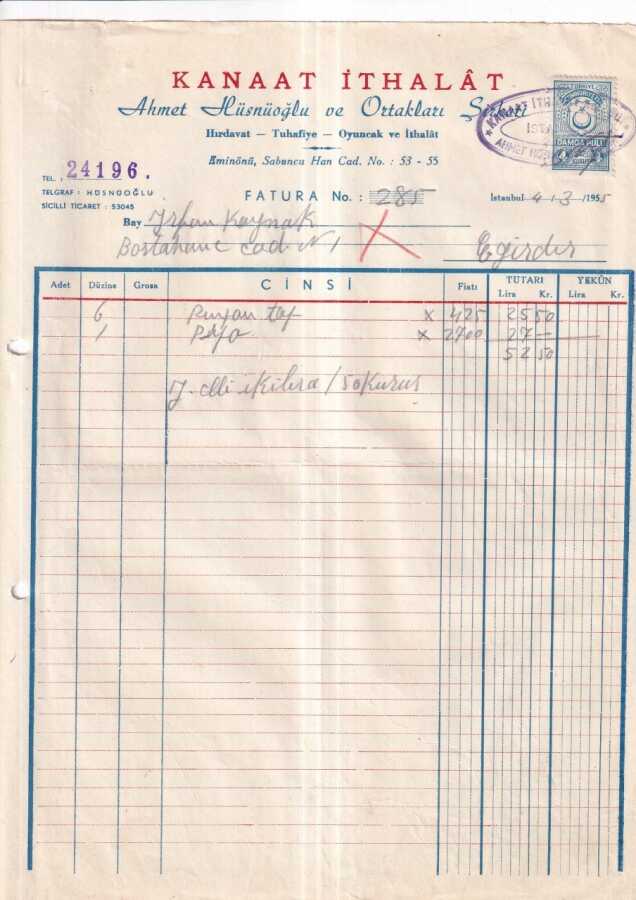 KANAAT İTHALÂT
Ahmet Hüsnüoğlu ve Ortakları Şirketi
Hırdavat — Tuhafiye — Oyuncak ve İthalât
Eminönü, Sabuncu Han Cad. No. : 53 - 55
TEL. : 24196.
TELGRAF : HÜSNÜOĞLU
SİCİLLİ TİCARET : 53045
KANAAT İTH
İST
AHMET HÜS
DAMGA PULU
FATURA No. : 285
İstanbul 4 - 3 /1955
Bay İrfan Kaynak
Bostahane cad. N 1
Eğirdir
Adet Düzine Grosa CİNSİ Fiatı TUTARI YEKÛN
Lira Kr. Lira Kr.
6 x 425 25 50
1 x 2700 27 —
52 50
Y. elli iki lira / 50 Kuruş